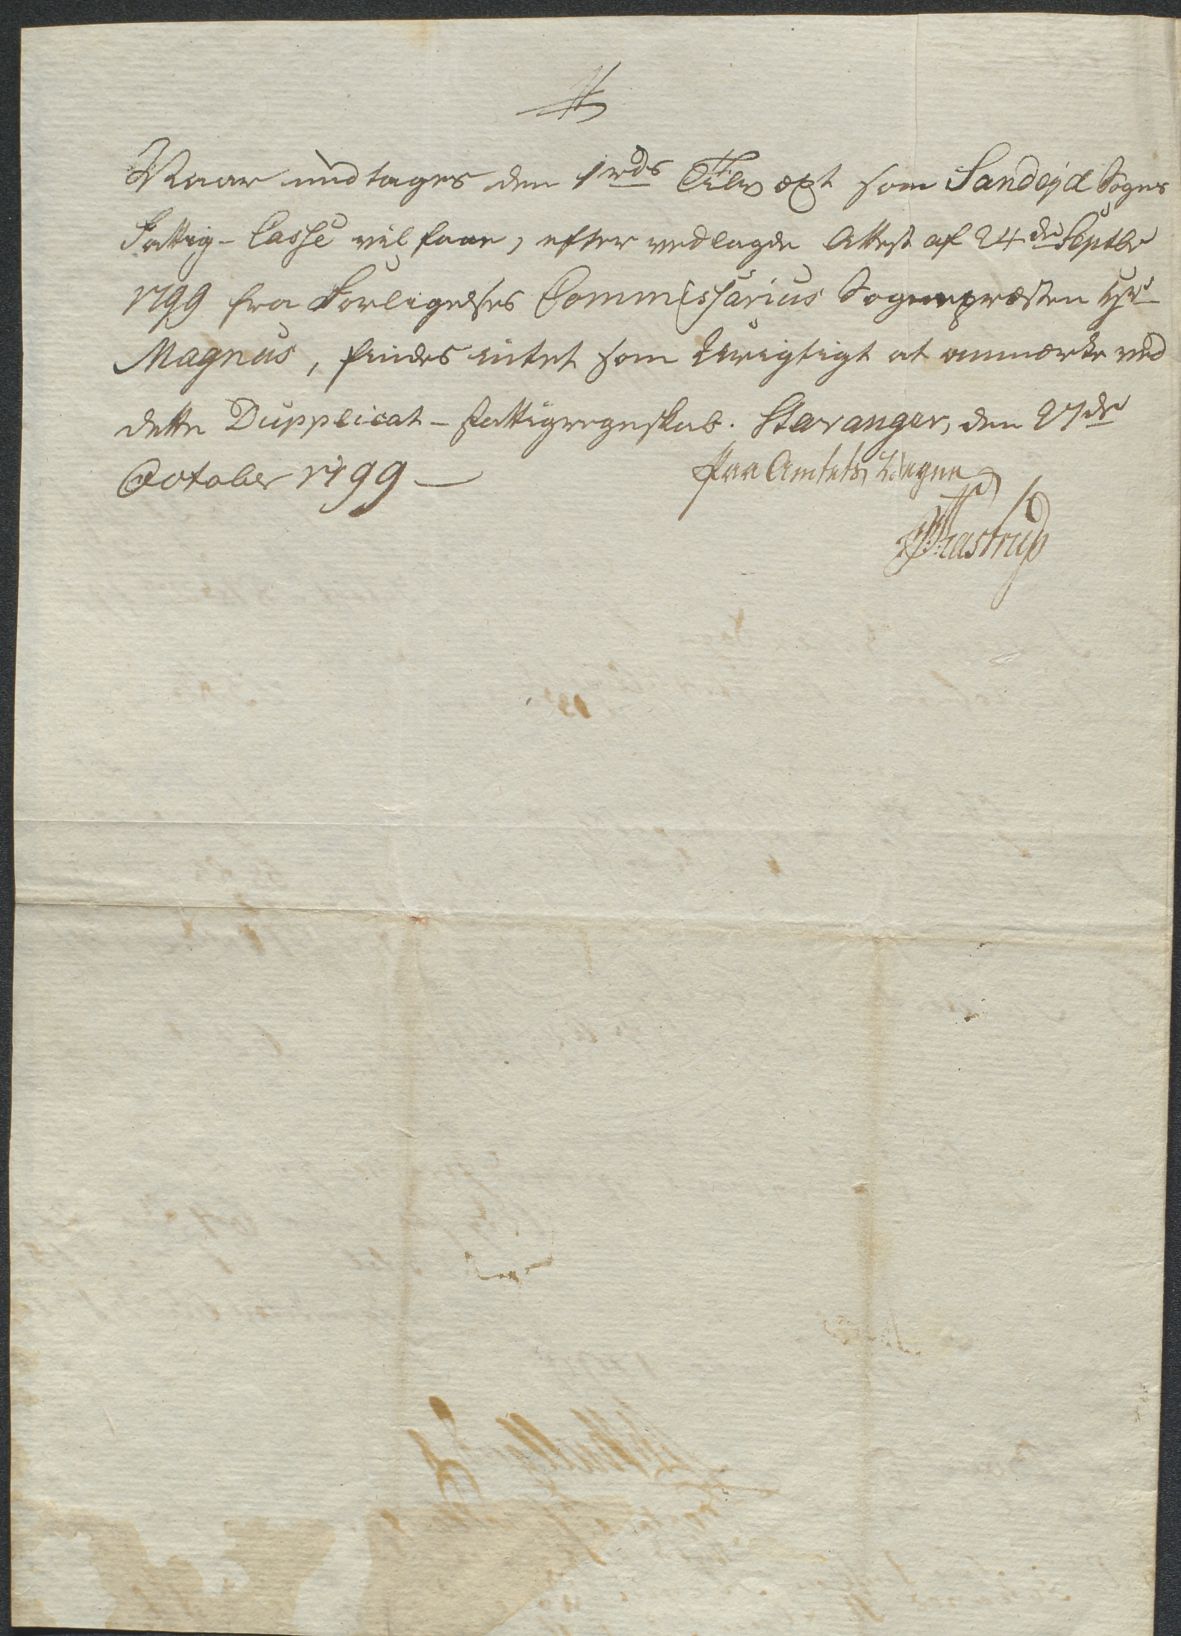 Naar undtages den 1 rds som Sandejd Sogns
Fattig-Casse vil faae, efter vedlagde Attest af 24de Septbr
1799 fra Forligelses Commissarius Sognepræsten Hr
Magnus, findes intet som Urigtigt at anmærke ved
dette Dupplicat-Fattigregnskab. Stavanger, den 27de
October 1799
Paa Amtets Vegne
Kastrup